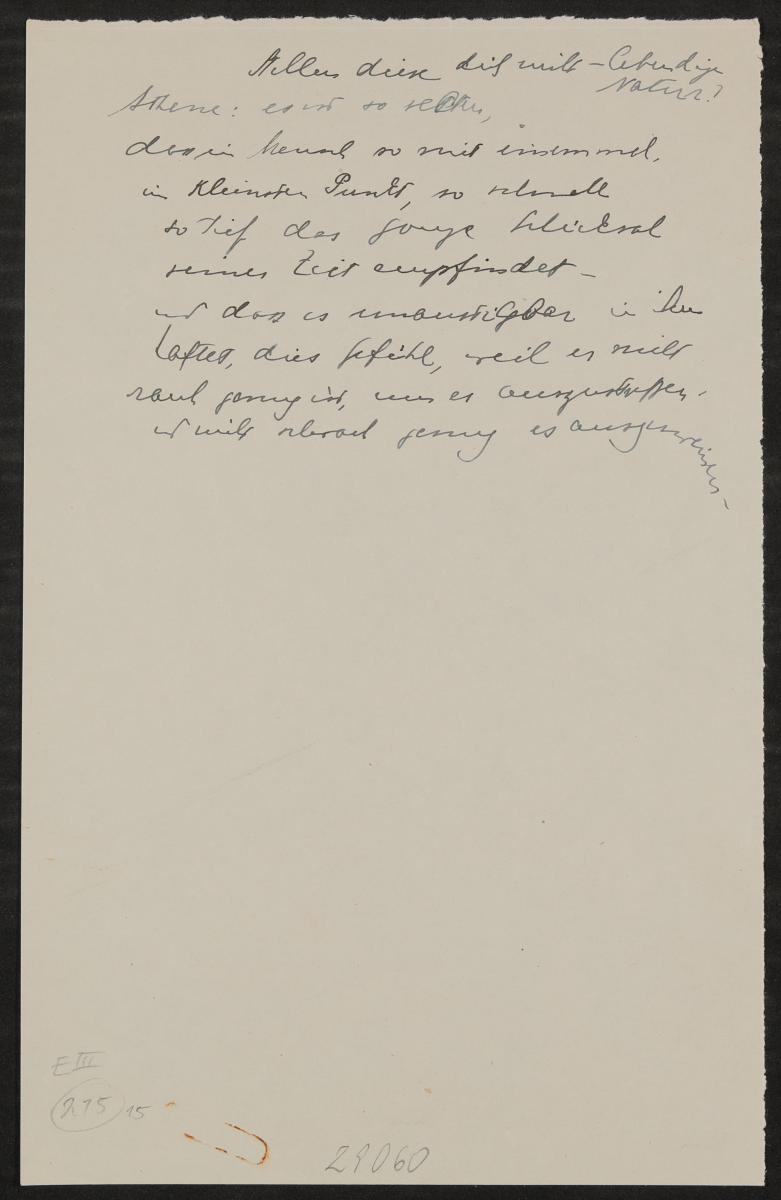 diese dich nicht – lebendige
Natur?
Athene: es ist so selten,
dass ein Mensch so mit einemmal,
im kleinsten Punkt, so schnell
so tief das ganze Schicksal
seiner Zeit empfindet –
und dass es unaustilgbar in ihm
haftet, dies Gefühl, weil er nicht
rauh genug ist, um es auszustossen,
und nicht schwach genug es auszuweinen –
E III
275 15
29060